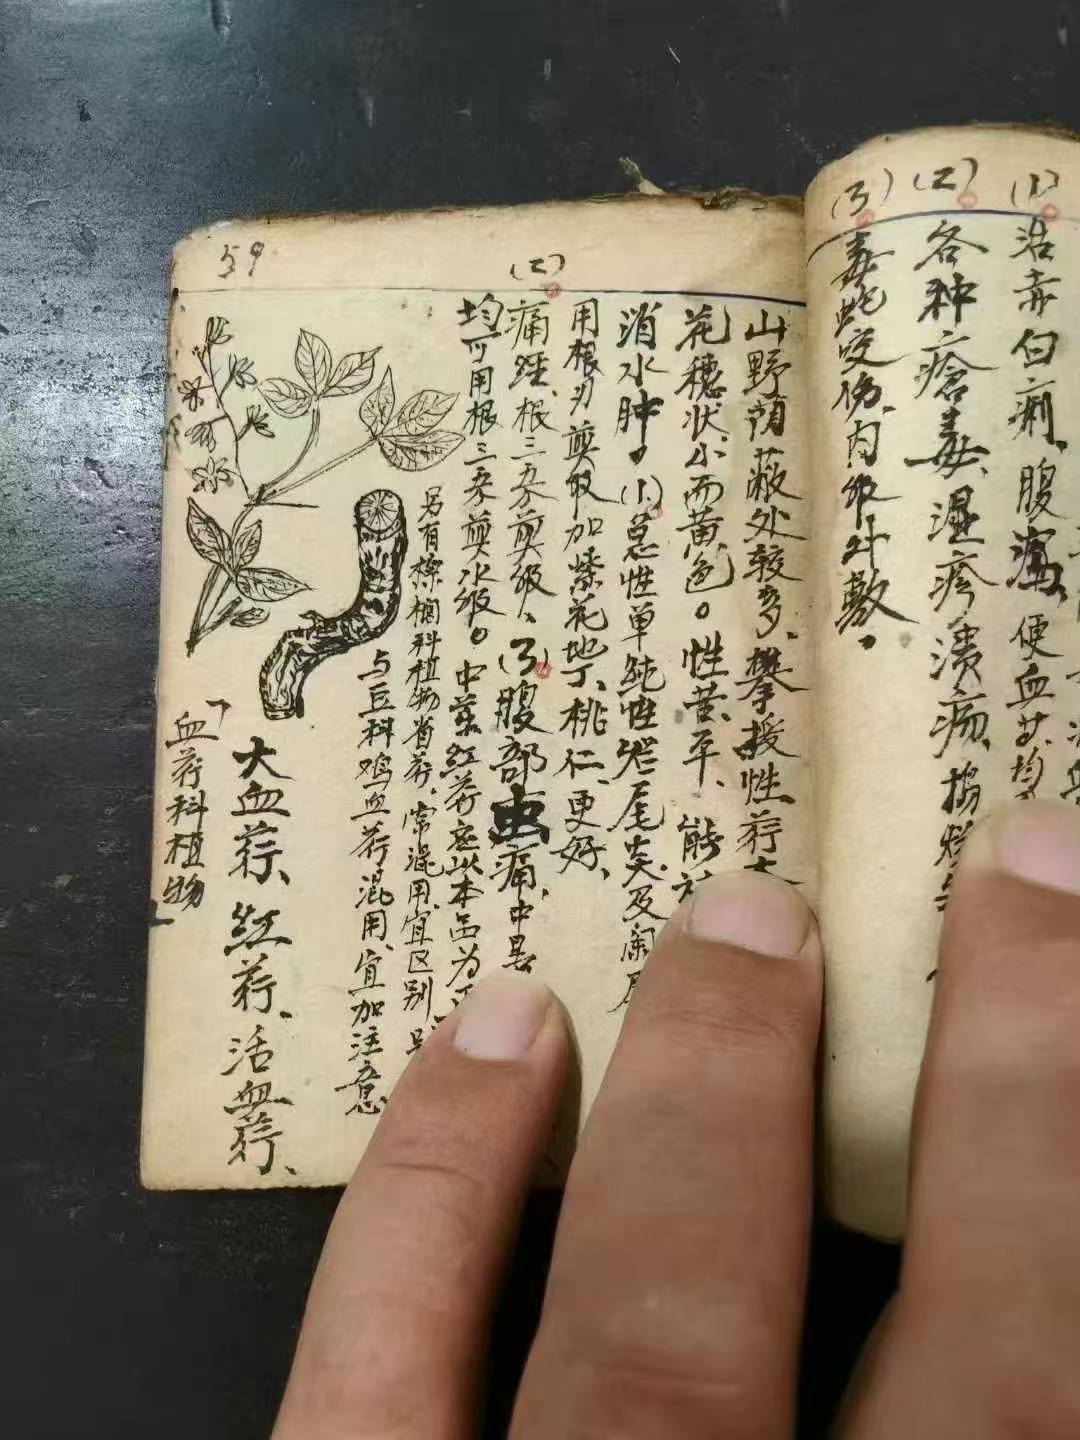 (1) 治赤白痢、腹泻、便血等、均
(2) 各种疮毒、湿疹、溃疡、捣烂
(3) 毒蛇咬伤、内服外敷。
59
山野荫蔽处较多、攀援性藤
花穗状、小而黄色。性苦、平、能
消水肿。(1)急性单纯性阑尾炎及阑尾
用根 煎服加紫花地丁、桃仁、更好、
(2) 痛经、根三五 煎服、(3)腹部虫痛、
均可用根三五 煎水服。中药红藤应以本品为正
另有 科植物省藤、常混用、宜区别
与豆科鸡血藤混用、宜加注意
大血藤、红藤、活血藤、
「血藤科植物」